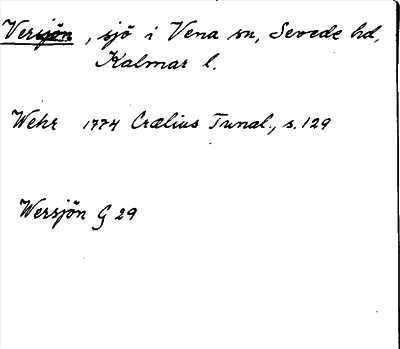 Versjön, sjö i Vena sn, Sevede hd,
Kalmar l.
Wehr 1774 Crælius Tunal., s. 129
Wersjön G 29